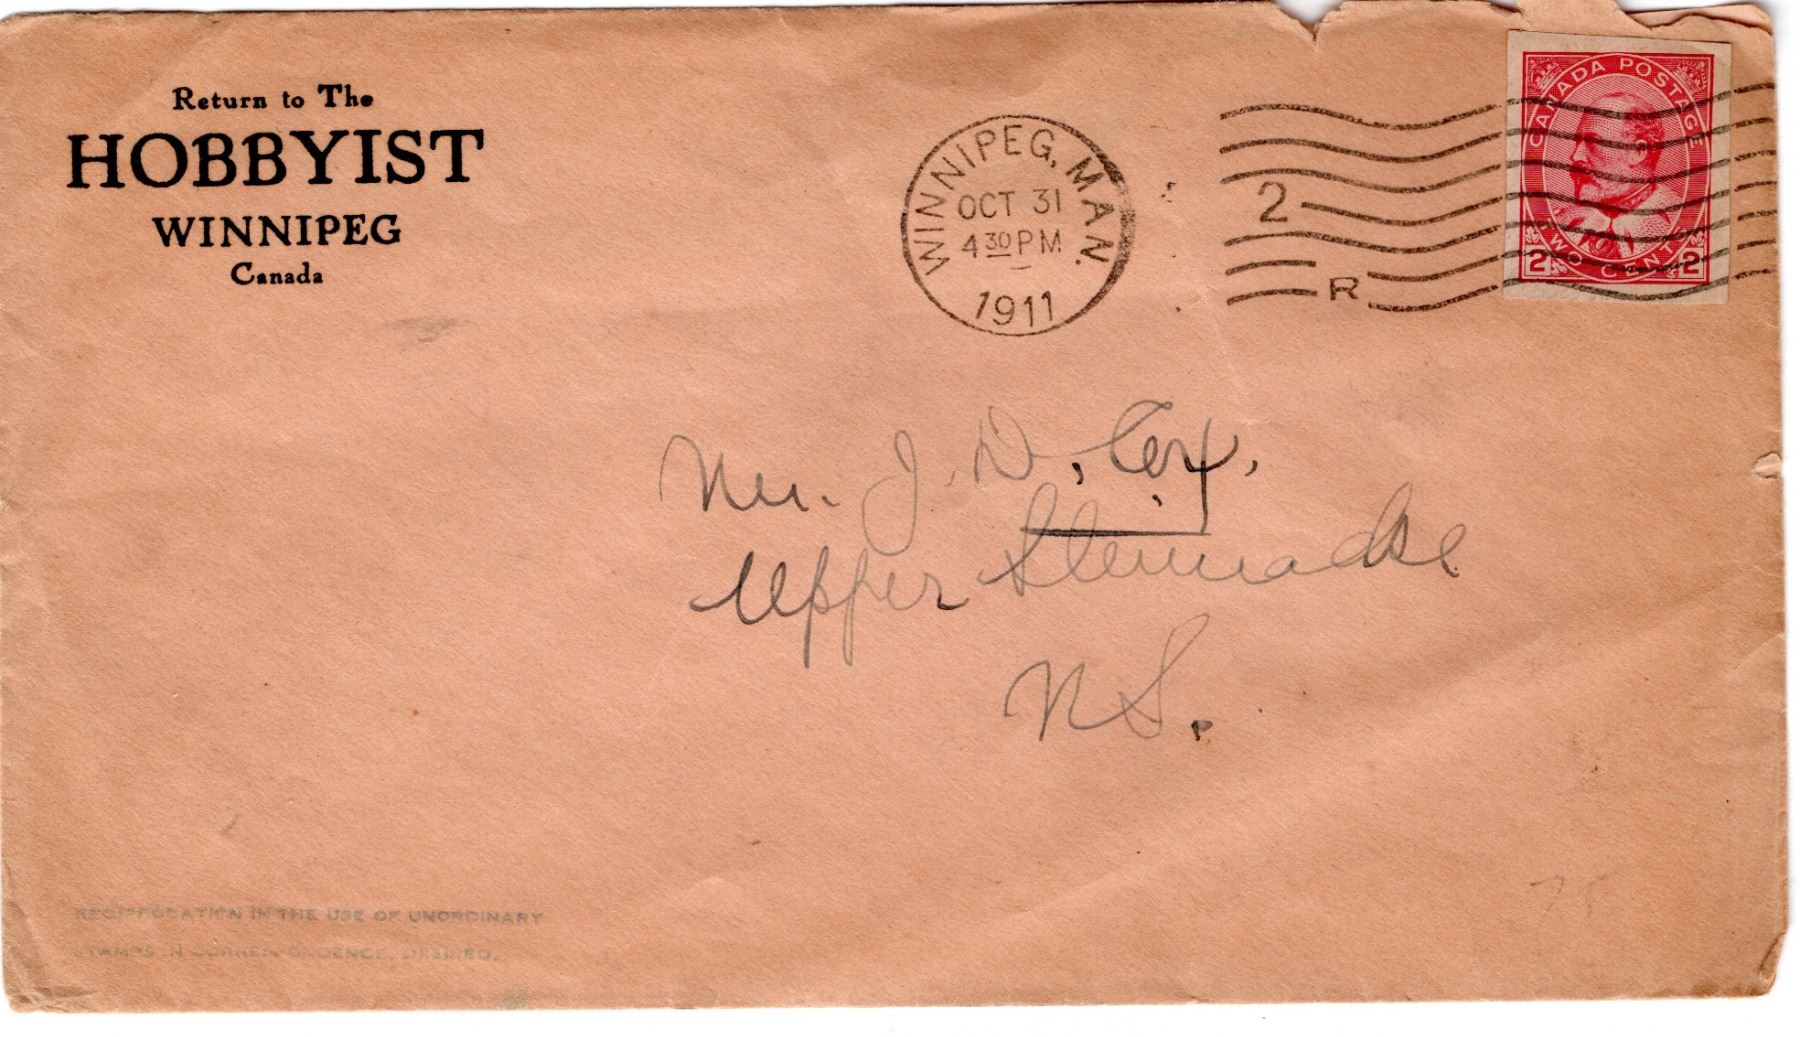 Return to The
HOBBYIST
WINNIPEG
Canada
WINNIPEG, MAN.
OCT 31
4 30 PM
1911
2
R
CANADA POSTAGE
TWO CENTS
2 2
Mr. J. D. Cox,
Upper Stewiacke
N S.
RECIPROCATION IN THE USE OF UNORDINARY
STAMPS IN CORRESPONDENCE, DESIRED.
75